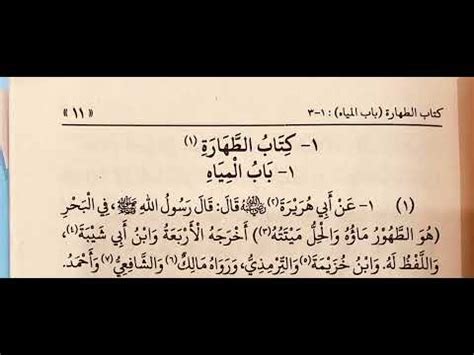 كتاب الطهارة (باب المياه) : ١-٣ « ١١ »
١- كِتَابُ الطَّهَارَةِ (١)
١- بَابُ الْمِيَاهِ
(١) ١- عَنْ أَبِي هُرَيْرَةَ(٢) ﷺ قَالَ: قَالَ رَسُولُ اللهِ ﷺ، فِي الْبَحْرِ
(هُوَ الطَّهُورُ مَاؤُهُ وَالْحِلُّ مَيْتَتُهُ(٣)) أَخْرَجَهُ الْأَرْبَعَةُ وَابْنُ أَبِي شَيْبَةَ(٤)،
وَاللَّفْظُ لَهُ. وَابْنُ خُزَيْمَةَ(٥) وَالتِّرْمِذِيُّ، وَرَوَاهُ مَالِكٌ(٦) وَالشَّافِعِيُّ(٧) وَأَحْمَدُ.